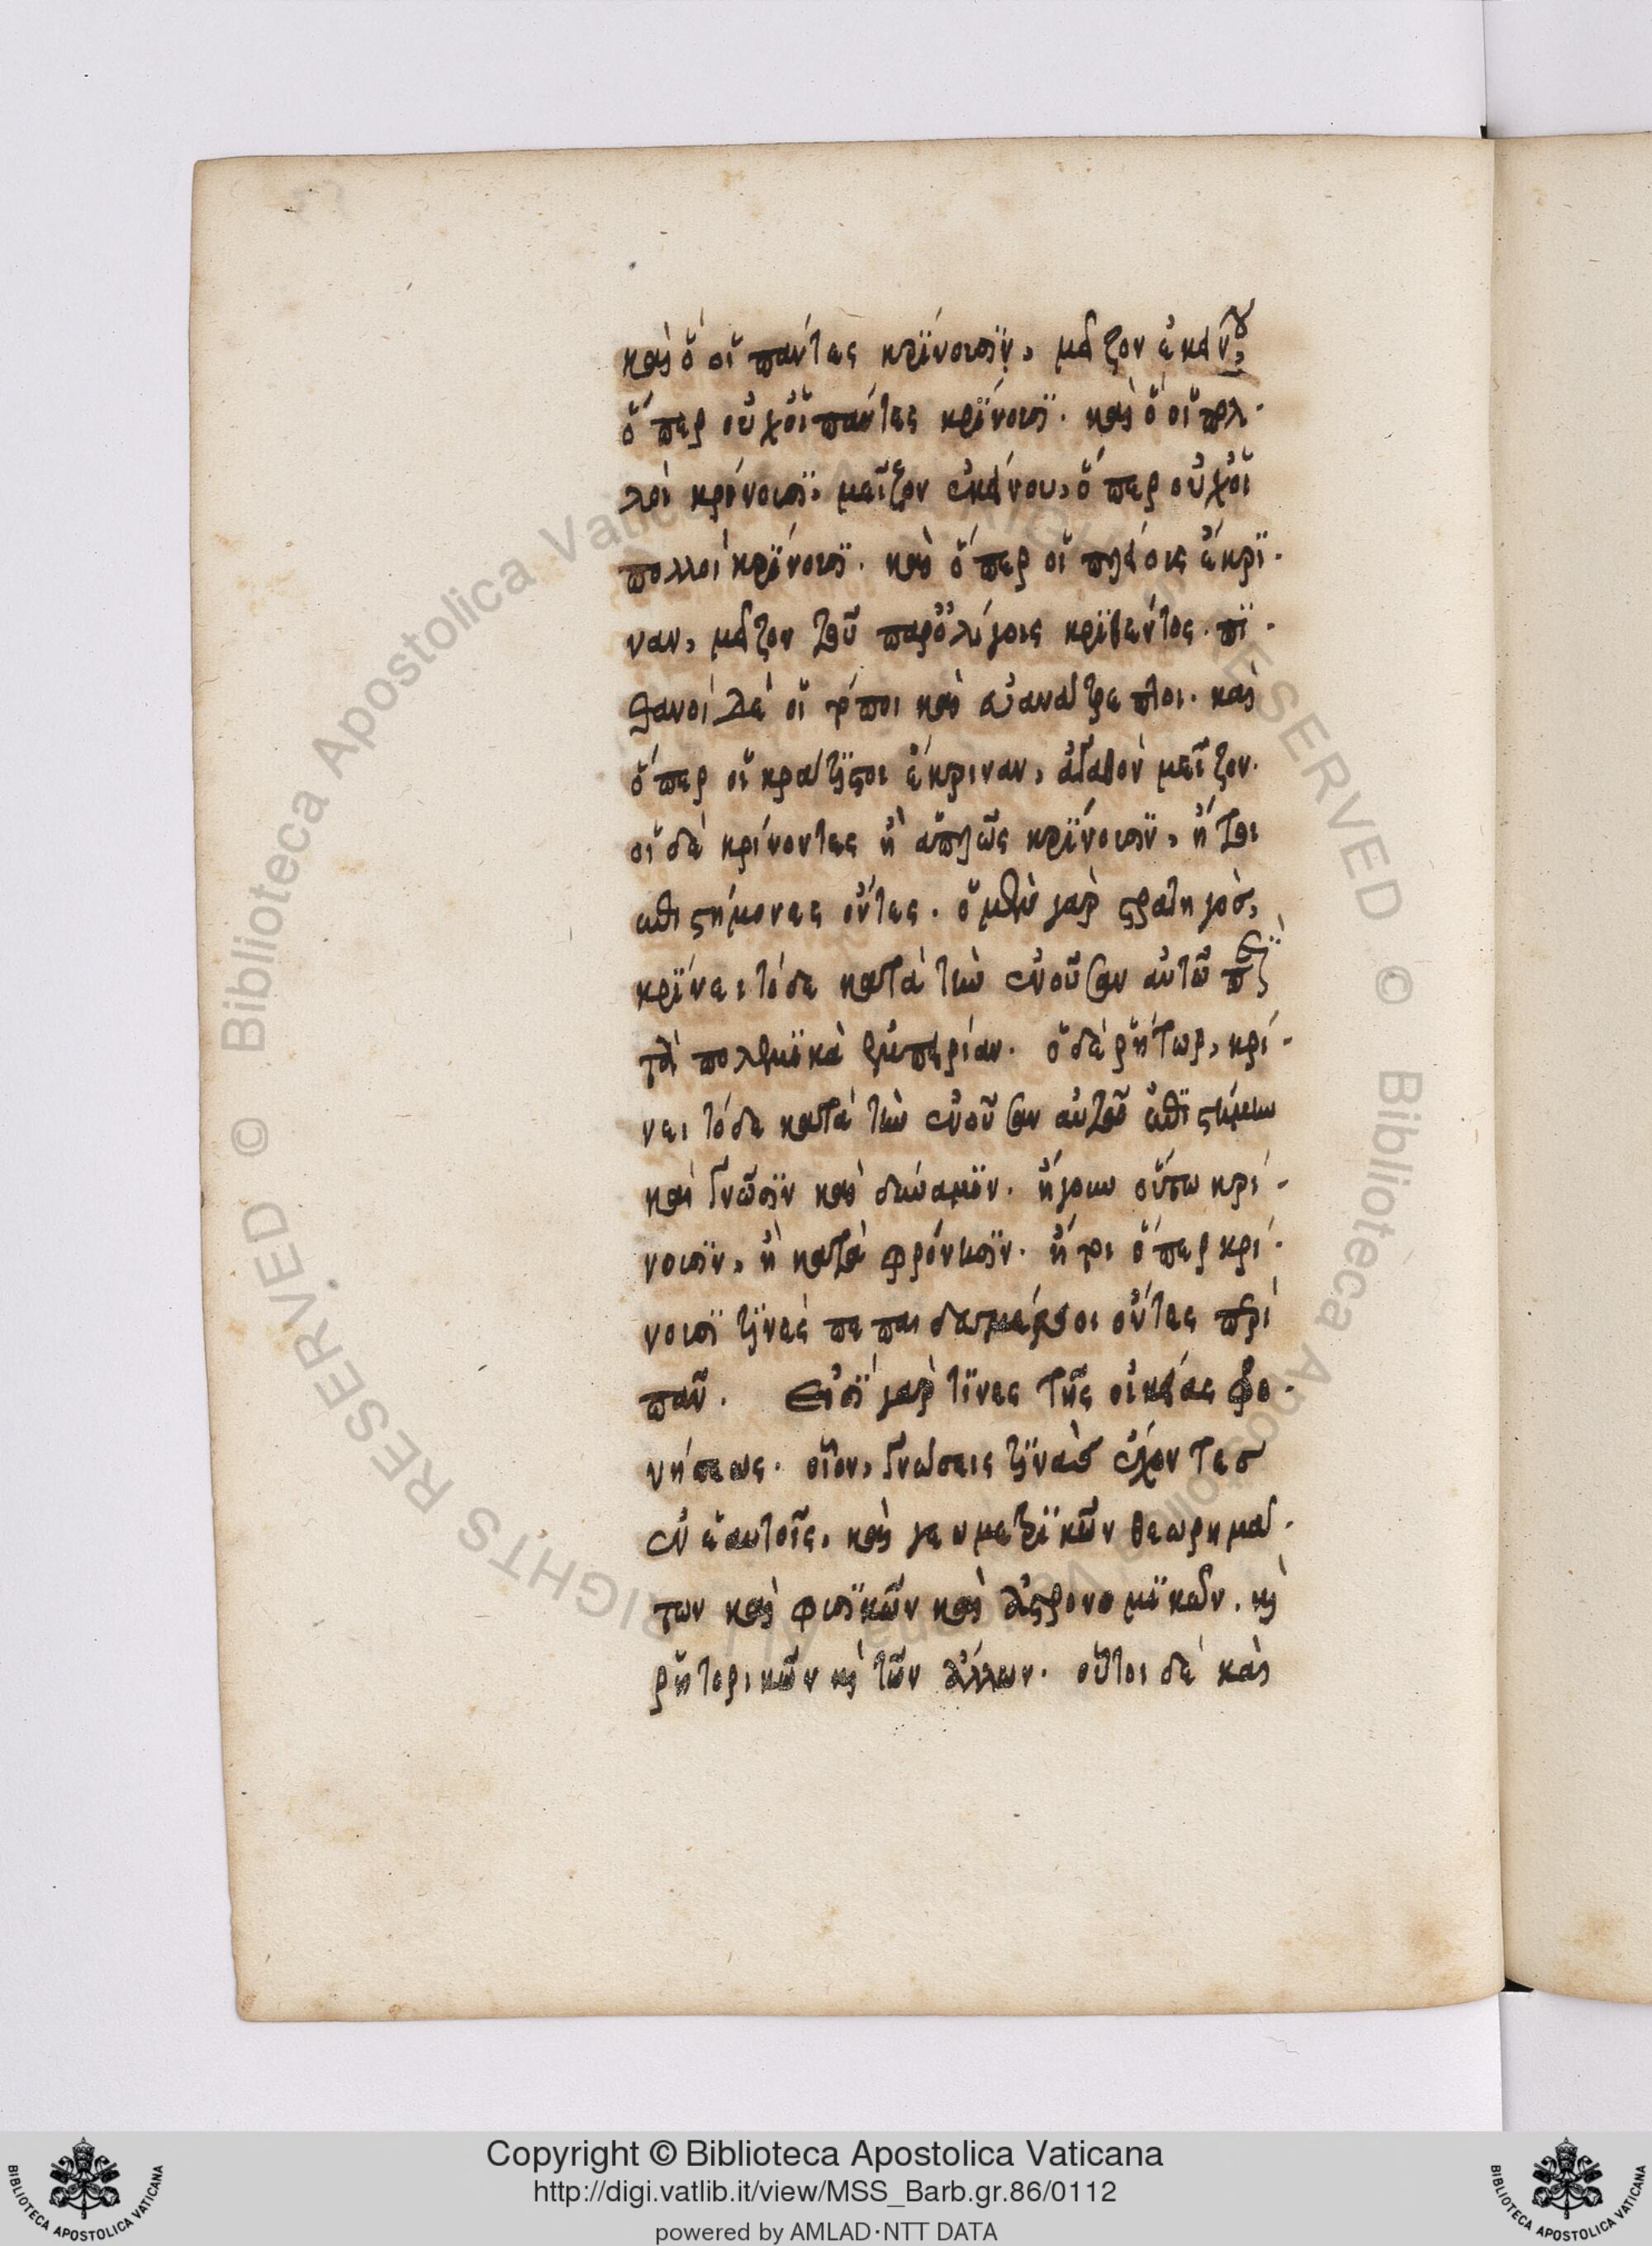 καὶ ὃ οἱ πάντες κρίνουσϊν, μεῖζον ἐκείνου,
ὅπερ οὐχ οἱ πάντες κρίνουσϊ. καὶ ὃ οἱ πολ
λοὶ κρίνουσϊ, μεῖζον ἐκείνου, ὅπερ οὐχ οἱ
πολλοὶ κρίνουσϊ. καὶ ὅπερ οἱ πλείους ἔκρϊ
ναν, μεῖζον τοῦ παρ' ὀλίγοις κρϊθέντος. πϊ
θανοὶ δὲ οἱ τόποι καὶ ἀνανάτρεπτοι. καὶ
ὅπερ οἱ κράτϊστοι ἔκριναν, ἀγαθὸν μεῖζον.
οἱ δὲ κρίνοντες ἢ ἁπλῶς κρίνουσϊν, ἤτοι
ἐπιστήμονες ὄντες. ὁ μὲν γὰρ στρατηγὸσ,
κρίνει τόδε κατὰ τὴν ἐνοῦσαν αὐτῶ περὶ
τὰ πολεμϊκὰ ἐμπειρίαν. ὁ δὲ ῥήτωρ, κρί
νει τόδε κατὰ τὴν ἐνοῦσαν αὐτοῦ ἐπϊστήμην
καὶ γνῶσϊν καὶ δύναμϊν. ἤγουν οὕτω κρί
νουσϊν, ἢ κατὰ φρόνησϊν. ἤτοι ὅπερ κρί
νουσϊ τϊνὲς πεπαιδευμένοι ὄντες περὶ
πᾶν. Εἰσϊ γάρ τϊνες τῆς οἰκείας φρο
νήσεως. οἷον, γνώσεις τϊνὰσ ἔχοντεσ
ἐν ἑαυτοῖς, καὶ γεωμετρϊκῶν θεωρημά
των καὶ φυσϊκῶν καὶ ἀστρονομϊκῶν. καὶ
ῥητορικῶν καὶ τῶν ἄλλων. οὗτοι δὲ καὶ
Copyright © Biblioteca Apostolica Vaticana
http://digi.vatlib.it/view/MSS_Barb.gr.86/0112
powered by AMLAD·NTT DATA